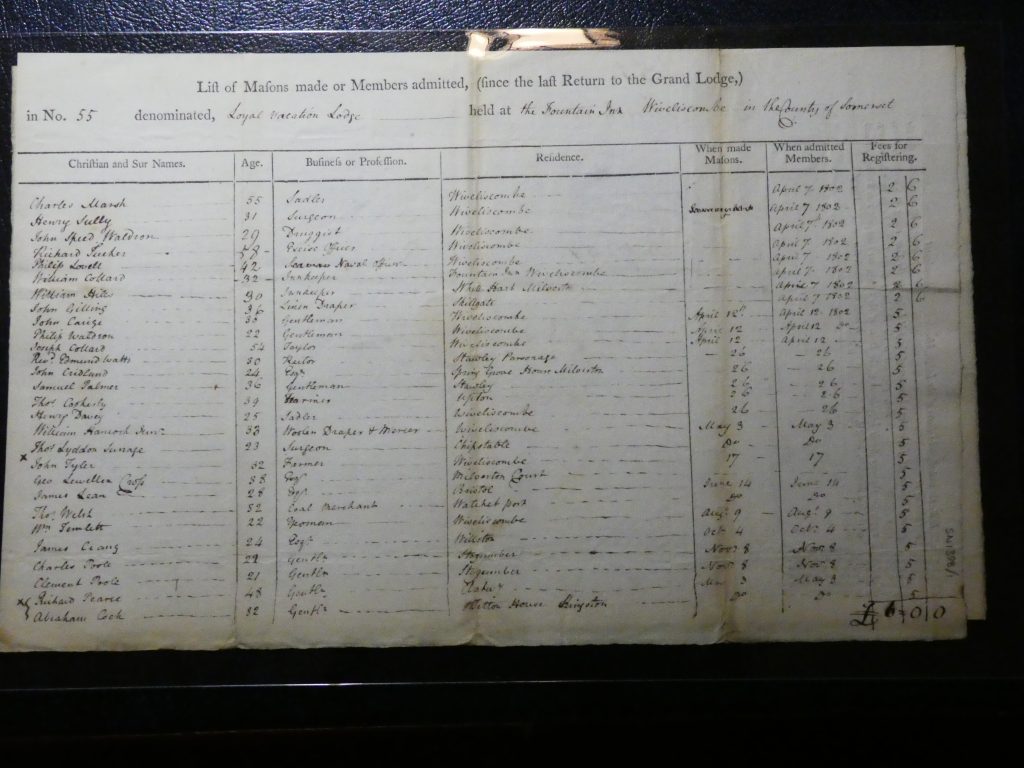 List of Masons made or Members admitted, (since the last Return to the Grand Lodge,)
in No. 55 denominated, Loyal Vacation Lodge held at the Fountain Inn Wiveliscombe in the County of Somerset
Christian and Sur Names. Age. Business or Profession. Residence. When made Masons. When admitted Members. Fees for Registering.
Charles Marsh 55 Sadler Wiveliscombe April 7 1802 2 6
Henry Sully 31 Surgeon Wiveliscombe April 7 1802 2 6
John Speed Waldron 29 Druggist Wiveliscombe April 7 1802 2 6
Richard Tucker Excise Officer Wiveliscombe April 7 1802 2 6
Philip Lovell 42 Seaman Naval Officer Wiveliscombe April 7 1802 2 6
William Collard 32 Innkeeper Fountain Inn Wiveliscombe April 7 1802 2 6
William Hill 30 Innkeeper White Hart Milverton April 7 1802 2 6
John Gilling 36 Linen Draper Skilgate April 7 1802 2 6
John Gentleman Wiveliscombe April 12 April 12 1802 5
Philip Waldron 22 Gentleman Wiveliscombe April 12 April 12 Do 5
Joseph Collard 54 Taylor Wiveliscombe April 12 April 12 5
Revd. Edmund Watts 30 Rector Stawley Parsonage 26 26 5
John Cridland 24 Esqr. Spring Grove House Milverton 26 26 5
Samuel Palmer 36 Gentleman Stawley 26 26 5
Thos. 39 Farmer Upton 26 26 5
Henry Davey 25 Sadler Wiveliscombe 26 26 5
William Hancock Junr. 33 Woolen Draper & Mercer Wiveliscombe May 3 May 3 5
Thos. Lyddon Surrage 23 Surgeon Chipstable Do Do 5
x John Tyler 52 Farmer Wiveliscombe 17 17 5
Geo Lewellen Cross 38 Esqr. Milverton Court June 14 June 14 5
James Lean 28 Esqr. Bristol Do Do 5
Thos. Welsh 52 Coal Merchant Watchet port Augt. 9 Augt. 9 5
Wm. Tewlett 22 Yeoman Wiveliscombe Octr. 4 Octr. 4 5
James Crang 24 Esqr. Novr. 8 Novr. 8 5
Charles Poole Gentln. Stogumber Novr. 8 Novr. 8 5
Clement Poole 21 Gentln. Stogumber May 3 May 3 5
x Richard Pearce 48 Gentln. Do Do 5
Abraham Cock 32 Gentln. House Kingston
£ 6 - 0 - 0